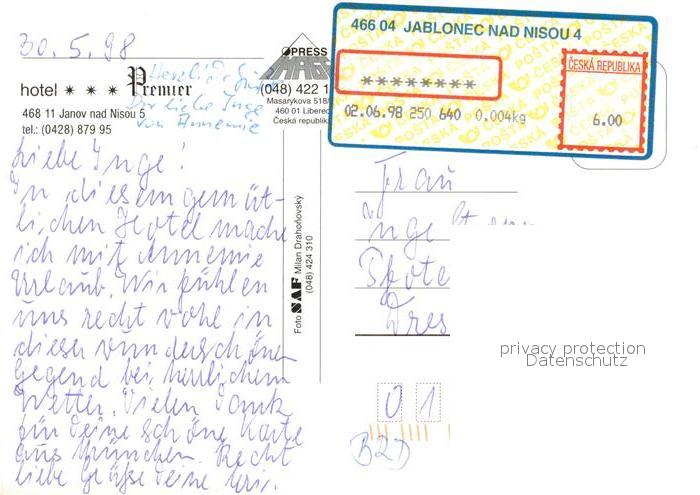 30.5.98
Herzliche Grüße
Dir liebe Inge
von Annemie
hotel * * * Premier
468 11 Janov nad Nisou 5
tel.: (0428) 879 95
Liebe Inge!
In diesem gemüt-
lichen Hotel mache
ich mit Annemie
Urlaub. Wir fühlen
uns recht wohl in
dieser wunderschönen
Gegend bei herrlichem
Wetter. Vielen Dank
für Deine schöne Karte
aus München. Recht
liebe Grüße Deine
PRESS
IMAGE
(048) 422 1
Masarykova 518/
460 01 Liberec
Česká republik
Foto SAF Milan Drahoňovský
(048) 424 310
466 04 JABLONEC NAD NISOU 4
********
02.06.98 250 640 0.004kg
ČESKÁ REPUBLIKA
6.00
ČESKÁ POŠTA
Frau
Inge
Dres
privacy protection
Datenschutz
01
B2D